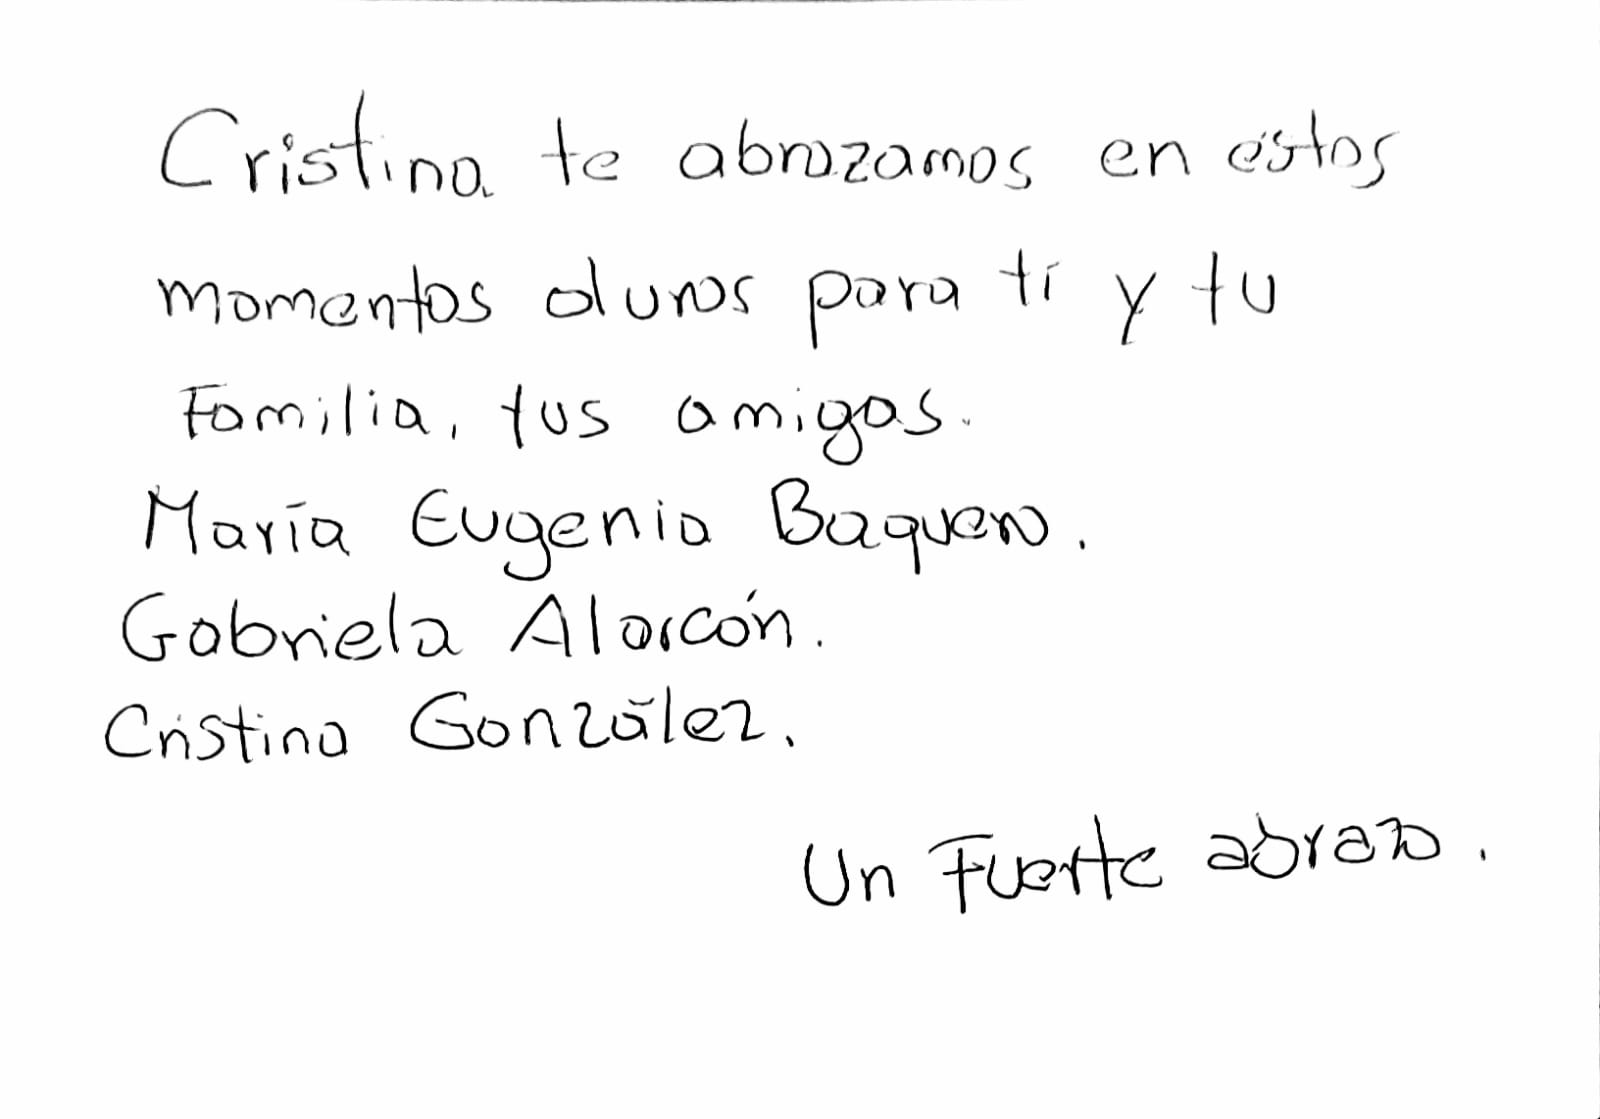 Cristina te abrazamos en éstos
momentos duros para ti y tu
Familia, tus amigas.
María Eugenia Baquero.
Gabriela Alarcón.
Cristina González.
Un Fuerte abrazo.